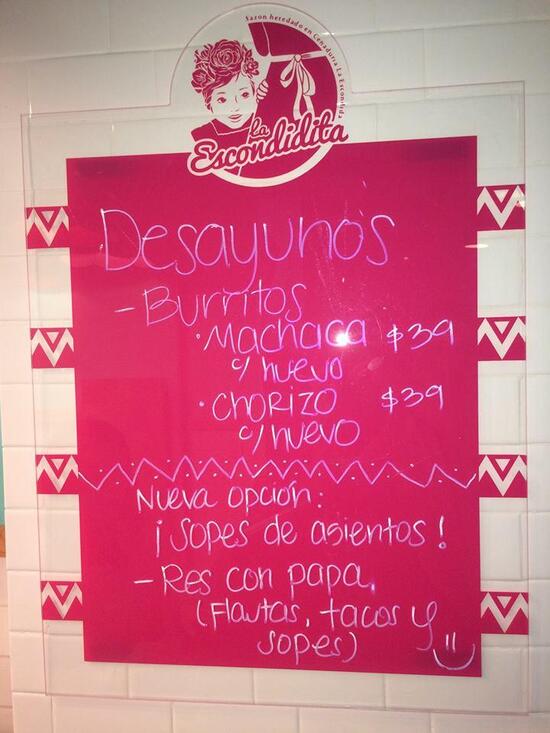 Sazon heredado en Cenaduria La Escondida
La
Escondidita
Desayunos
- Burritos
· Machaca $39
c/ huevo
· Chorizo $39
c/ huevo
Nueva opción:
¡Sopes de asientos!
- Res con papa
(Flautas, tacos y
sopes)